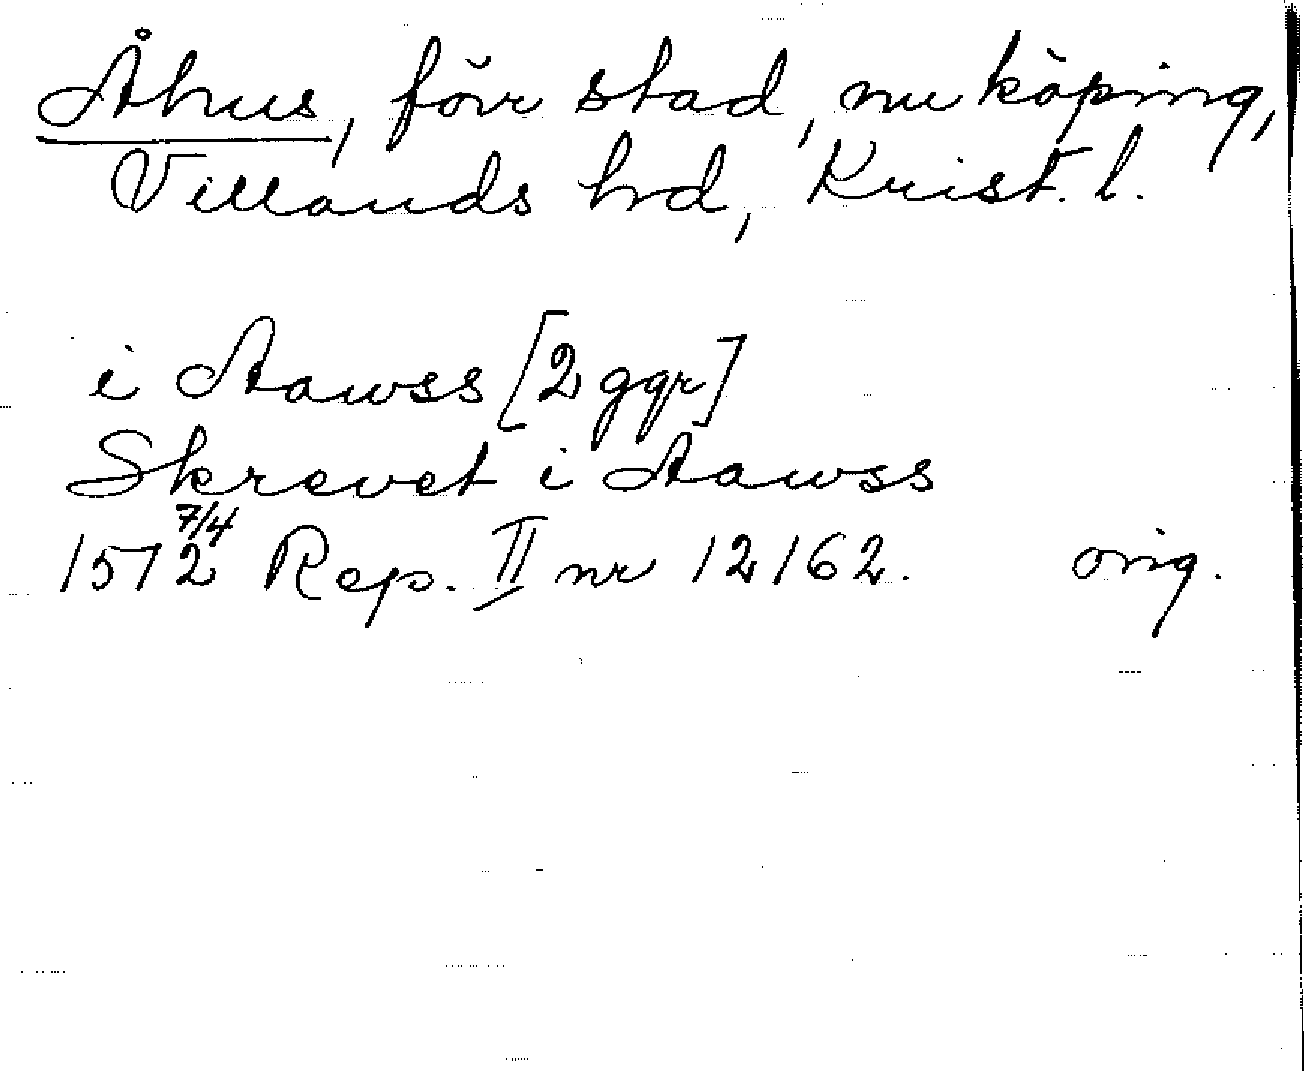 Åhus, förr stad, nu köping,
Villands hd, Krist. l.
i Aawss [2 ggr]
Skrevet i Aawss
1512 7/4 Rep. II nr 12162. orig.